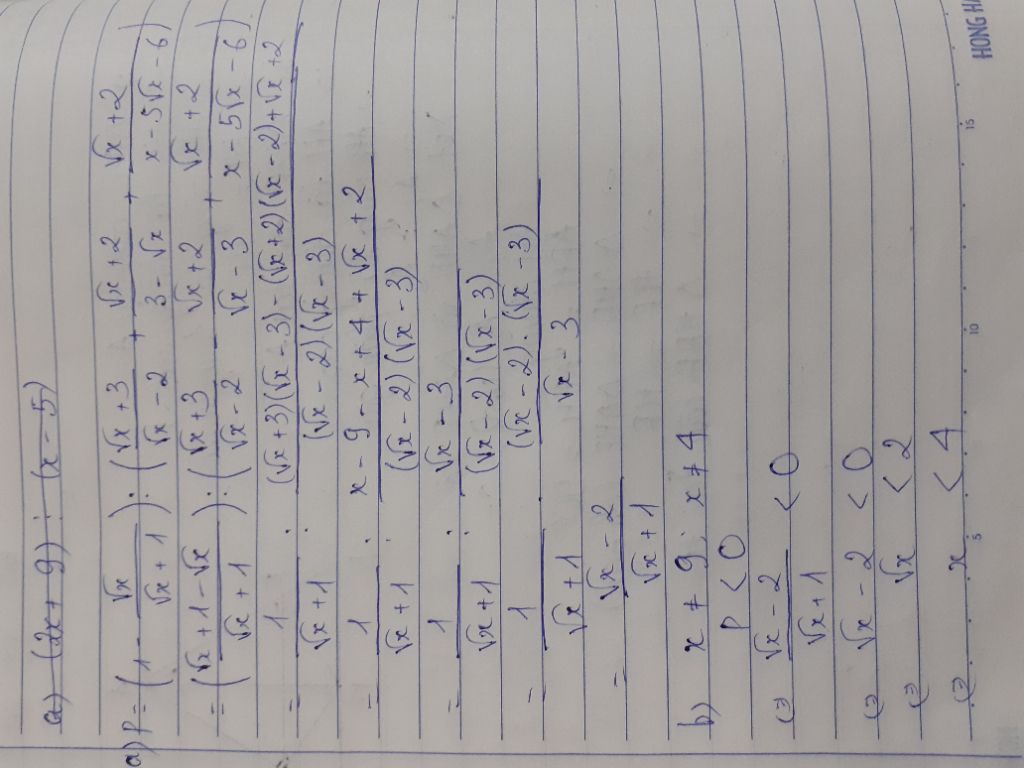 a) (2x + 9) : (x - 5)
a) P = (1 - √x / (√x + 1)) : ((√x + 3) / (√x - 2) + (√x + 2) / (3 - √x) + (√x + 2) / (x - 5√x - 6))
= ((√x + 1 - √x) / (√x + 1)) : ((√x + 3) / (√x - 2) - (√x + 2) / (√x - 3) + (√x + 2) / (x - 5√x - 6))
= 1 / (√x + 1) : ((√x + 3)(√x - 3) - (√x + 2)(√x - 2) + √x + 2) / ((√x - 2)(√x - 3))
= 1 / (√x + 1) : (x - 9 - x + 4 + √x + 2) / ((√x - 2)(√x - 3))
= 1 / (√x + 1) : (√x - 3) / ((√x - 2)(√x - 3))
= 1 / (√x + 1) . ((√x - 2).(√x - 3)) / (√x - 3)
= (√x - 2) / (√x + 1)
b) x ≠ 9; x ≠ 4
P < 0
(=) (√x - 2) / (√x + 1) < 0
(=) √x - 2 < 0
(=) √x < 2
(=) x < 4
5 10 15
HONG HA